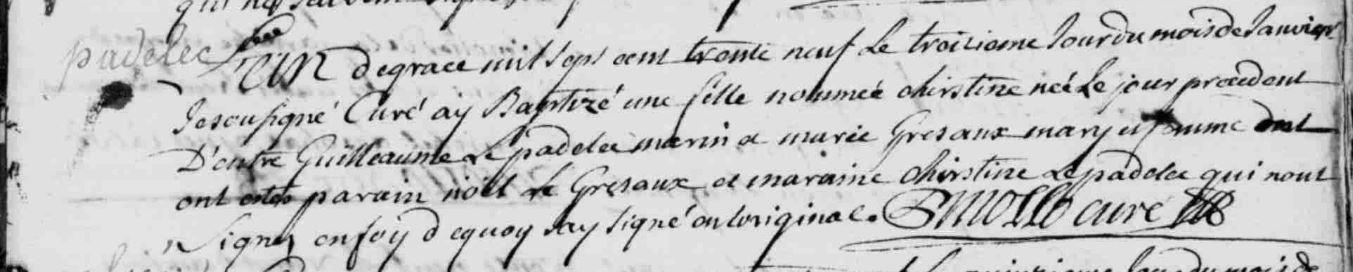 padelec
L'an de grace mil sept cent trente neuf Le troisieme Jour du mois de Janvier
Je sousigné Curé ay Baptizé une fille nommée chirstine neé Le jour precedent
D'entre Guilleaume Le padelec marin et marie Gresaux mary et famme dont
ont estes parain noël Le Gresaux et maraine chirstine Le padelec qui nont
Signez en foy dequoy Jay signé en Loriginal. curé